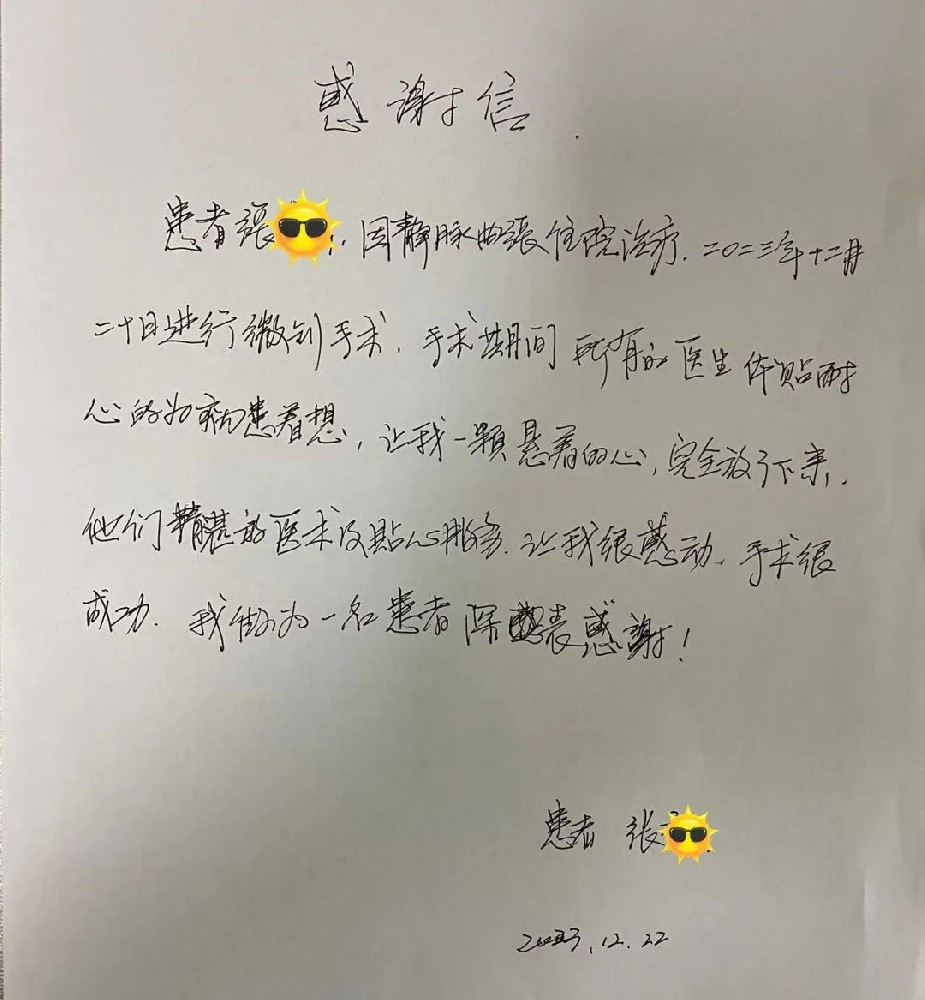 感谢信.
患者張 因静脉曲張住院治疗.二〇二三年十二月
二十日进行微创手术.手术期间所有的医生体贴耐
心的为病患着想,让我一颗悬着的心,完全放了下来.
他们精湛的医术及贴心服务.让我很感动.手术很
成功.我做为一名患者深表感謝!
患者 张
2023.12.22